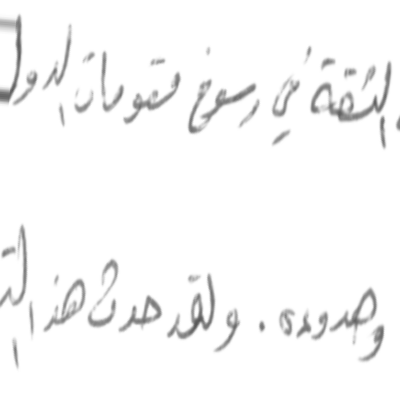 الثقة في رسوخ مقومات الدول
وحدوده. ولقد حدث هذا الت